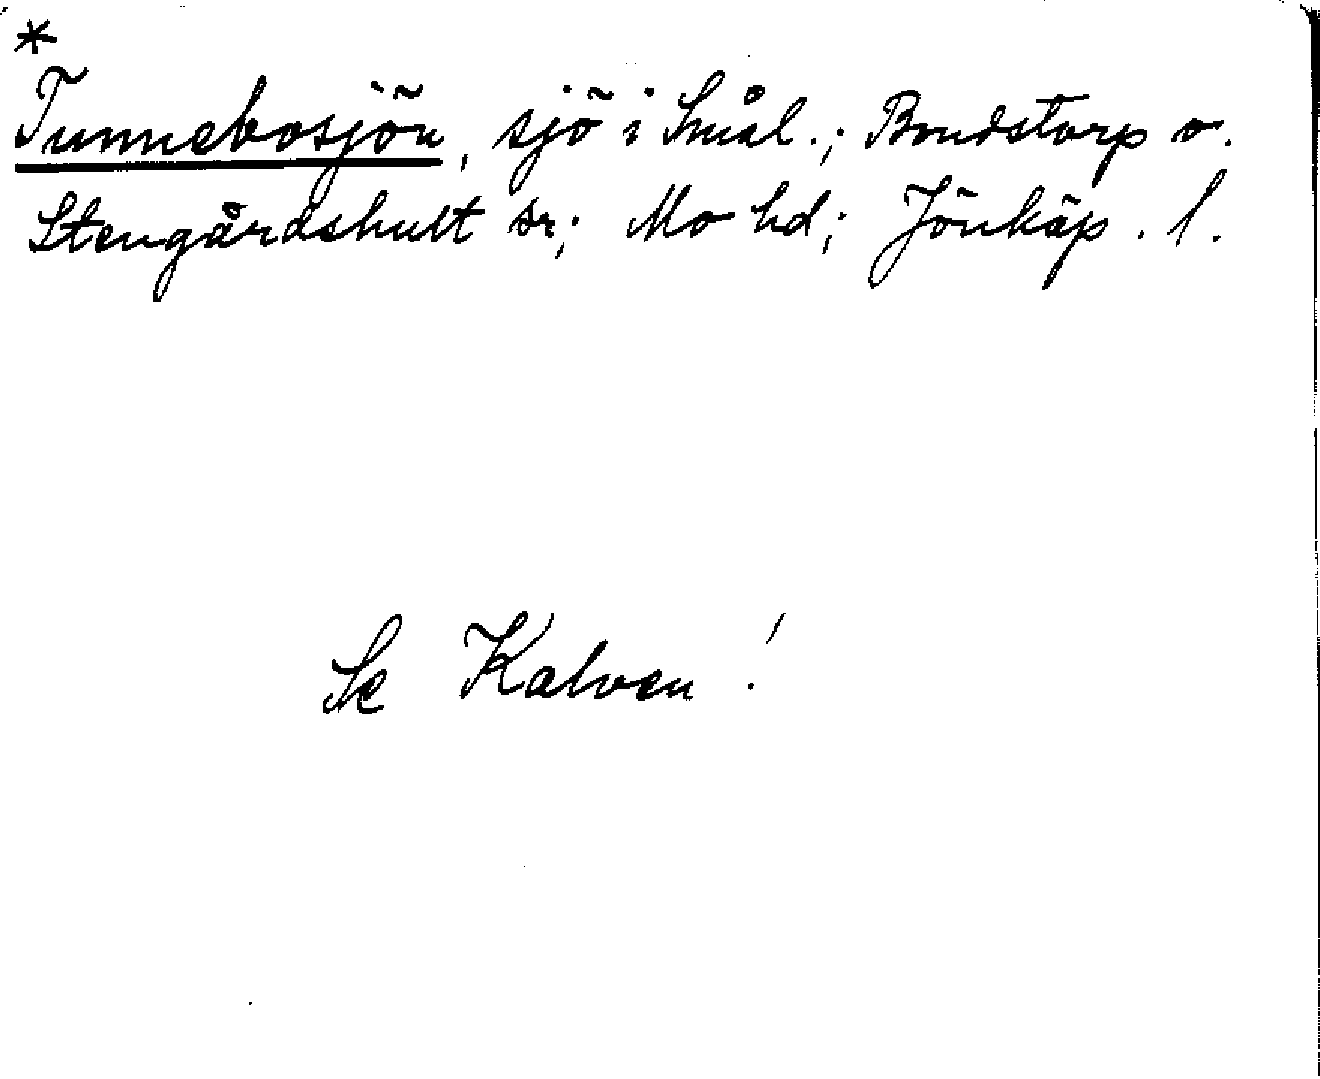 *
Tunnebosjön, sjö i Smål.; Bondstorp o.
Stengårdshult sr; Mo hd; Jönköp. l.
Se Kalven!